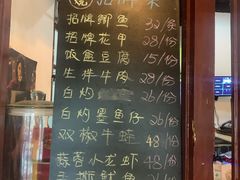 招牌菜
招牌鲫鱼 32/份
招牌花甲 28/份
饭盒豆腐 15/份
生拌牛肉 28/份
白灼 26/份
白灼墨鱼仔 26/份
双椒牛蛙 48/份
蒜蓉小龙虾 48/份
手撕鱿鱼